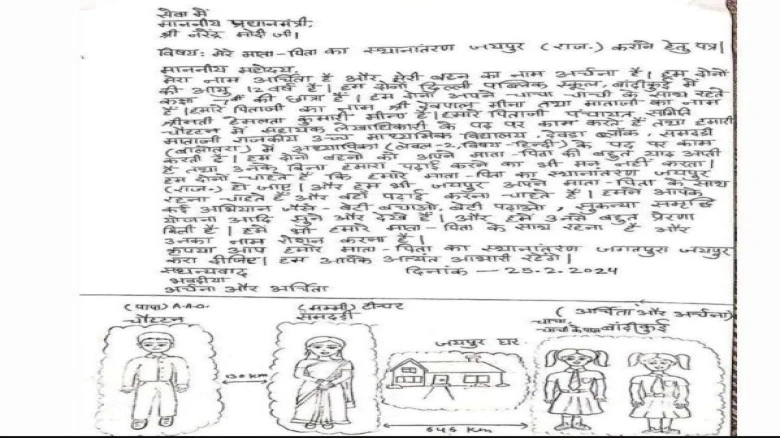 सेवा में
माननीय प्रधानमंत्री,
श्री नरेन्द्र मोदी जी।
विषय: मेरे माता-पिता का स्थानांतरण जयपुर (राज.) कराने हेतु पत्र।
माननीय महोदय,
मेरा नाम अर्चिता है और मेरी बहन का नाम अर्चना है। हम दोनो
की आयु 12 वर्ष है। हम दोनो दिल्ली पब्लिक स्कूल, बांदीकुई में
कक्षा 7वीं की छात्रा है। हम दोनो अपने चाचा-चाची के साथ रहते
है। हमारे पिताजी का नाम श्री देवपाल मीना तथा माताजी का नाम
श्रीमती हेमलता कुमारी मीना है। हमारे पिताजी पंचायत समिति
चौहटन में सहायक लेखाधिकारी के पद पर काम करते है तथा हमारी
माताजी राजकीय उच्च माध्यमिक विद्यालय, देवड़ा ब्लॉक, समदड़ी
(बालोतरा) में अध्यापिका (लेवल-2, विषय-हिन्दी) के पद पर काम
करती है। हम दोनो बहनो को अपने माता-पिता की बहुत याद आती
है तथा उनके बिना हमारा पढ़ाई करने का भी मन नहीं करता।
हम दोनो चाहते है कि हमारे माता-पिता का स्थानांतरण जयपुर
(राज.) हो जाए। और हम भी जयपुर अपने माता-पिता के साथ
रहना चाहते है और वहाँ पढ़ाई करना चाहते है। हमने आपके
कई अभियान जैसे - बेटी बचाओ, बेटी पढ़ाओ, सुकन्या समृद्धि
योजना आदि सुने और देखे है। और हमे उनसे बहुत प्रेरणा
मिली है। हमे भी हमारे माता-पिता के साथ रहना है और
उनका नाम रोशन करना है।
कृपया आप हमारे माता-पिता का स्थानांतरण जगतपुरा जयपुर
करा दीजिए। हम आपके अत्यंत आभारी रहेंगे।
सधन्यवाद दिनांक - 25.2.2024
भवदीया
अर्चना और अर्चिता
(पापा) A.A.O.
चौहटन
(मम्मी) टीचर
समदड़ी
जयपुर घर
(अर्चिता और अर्चना)
चाचा
चाची के पास बांदीकुई
130 km
545 Km